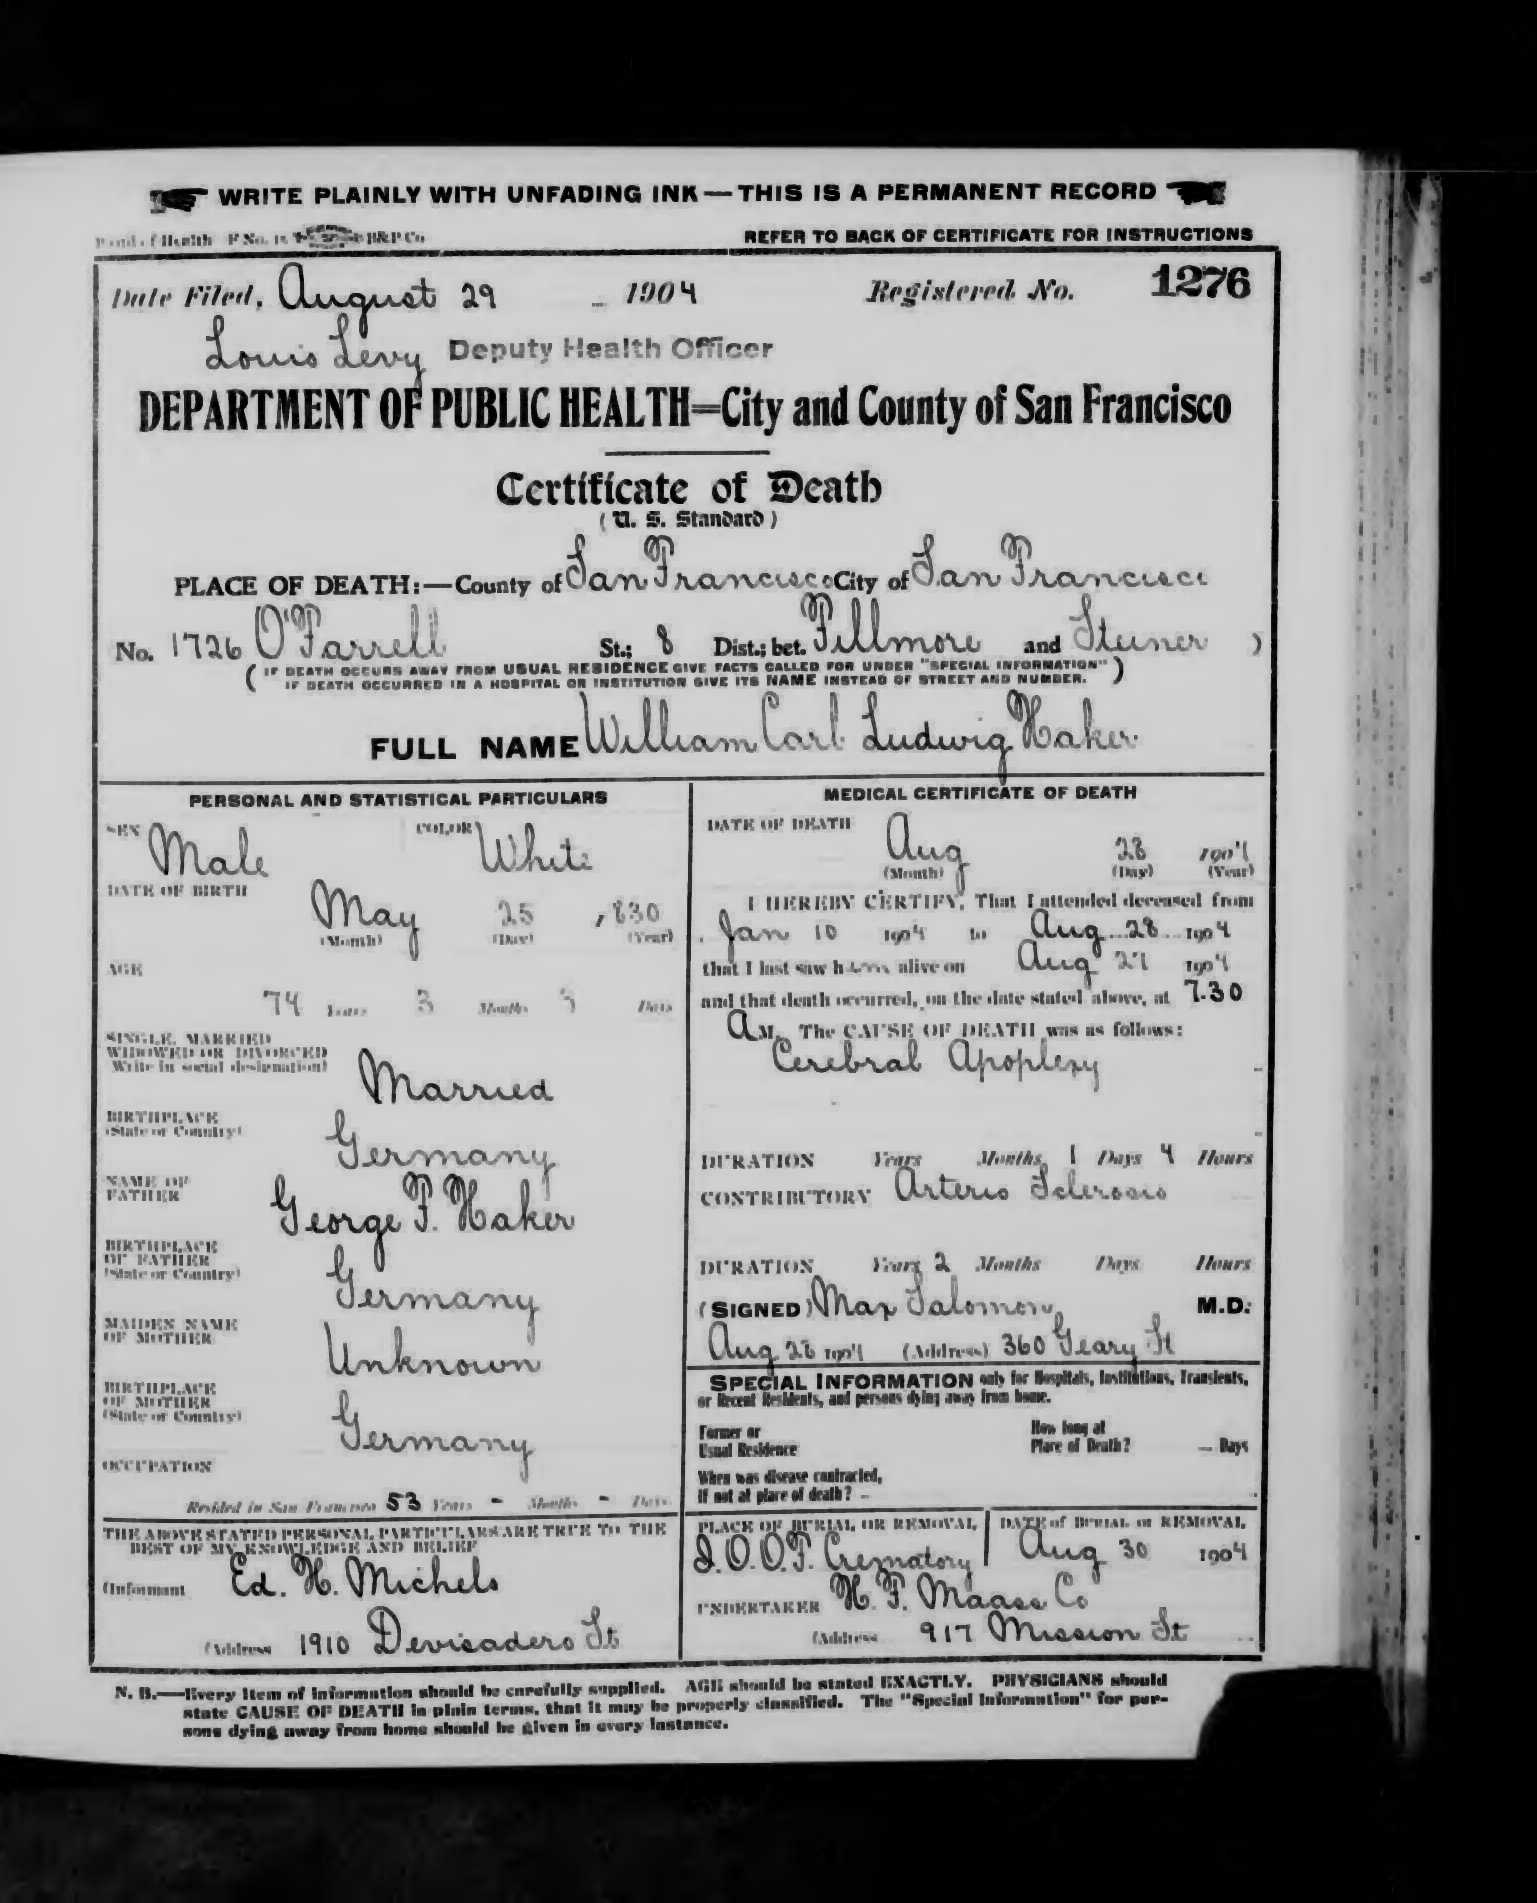 WRITE PLAINLY WITH UNFADING INK — THIS IS A PERMANENT RECORD
Board of Health F No. 15 B&P Co REFER TO BACK OF CERTIFICATE FOR INSTRUCTIONS
Date Filed, August 29 1904 Registered No. 1276
Louis Levy Deputy Health Officer
DEPARTMENT OF PUBLIC HEALTH=City and County of San Francisco
Certificate of Death
(U. S. Standard)
PLACE OF DEATH:—County of San Francisco City of San Francisco
No. 1726 O'Farrell St.; 8 Dist.; bet. Fillmore and Steiner )
( IF DEATH OCCURS AWAY FROM USUAL RESIDENCE GIVE FACTS CALLED FOR UNDER "SPECIAL INFORMATION" )
IF DEATH OCCURRED IN A HOSPITAL OR INSTITUTION GIVE ITS NAME INSTEAD OF STREET AND NUMBER.
FULL NAME William Carl Ludwig Haker
PERSONAL AND STATISTICAL PARTICULARS
SEX Male COLOR White
DATE OF BIRTH
May 25 1830
(Month) (Day) (Year)
AGE
74 Years 3 Months 3 Days
SINGLE, MARRIED
WIDOWED OR DIVORCED
(Write in social designation)
Married
BIRTHPLACE
(State or Country)
Germany
NAME OF
FATHER
George F. Haker
BIRTHPLACE
OF FATHER
(State or Country)
Germany
MAIDEN NAME
OF MOTHER
Unknown
BIRTHPLACE
OF MOTHER
(State or Country)
Germany
OCCUPATION
Resided in San Francisco 53 Years - Months - Days
THE ABOVE STATED PERSONAL PARTICULARS ARE TRUE TO THE
BEST OF MY KNOWLEDGE AND BELIEF
(Informant Ed. H. Michels
(Address 1910 Devisadero St
MEDICAL CERTIFICATE OF DEATH
DATE OF DEATH
Aug 28 1904
(Month) (Day) (Year)
I HEREBY CERTIFY, That I attended deceased from
Jan 10 1904 to Aug 28 1904
that I last saw him alive on Aug 27 1904
and that death occurred, on the date stated above, at 7.30
A M. The CAUSE OF DEATH was as follows:
Cerebral Apoplexy
DURATION Years Months 1 Days 4 Hours
CONTRIBUTORY Arterio Sclerosis
DURATION Years 2 Months Days Hours
(SIGNED) Max Salomon M.D.
Aug 28 1904 (Address) 360 Geary St
SPECIAL INFORMATION only for Hospitals, Institutions, Transients,
or Recent Residents, and persons dying away from home.
Former or
Usual Residence
How long at
Place of Death? — Days
When was disease contracted,
If not at place of death? -
PLACE OF BURIAL OR REMOVAL
I.O.O.F. Crematory
DATE of BURIAL or REMOVAL
Aug 30 1904
UNDERTAKER H. F. Maass Co
(Address 917 Mission St
N. B.—Every item of information should be carefully supplied. AGE should be stated EXACTLY. PHYSICIANS should
state CAUSE OF DEATH in plain terms, that it may be properly classified. The "Special Information" for per-
sons dying away from home should be given in every instance.